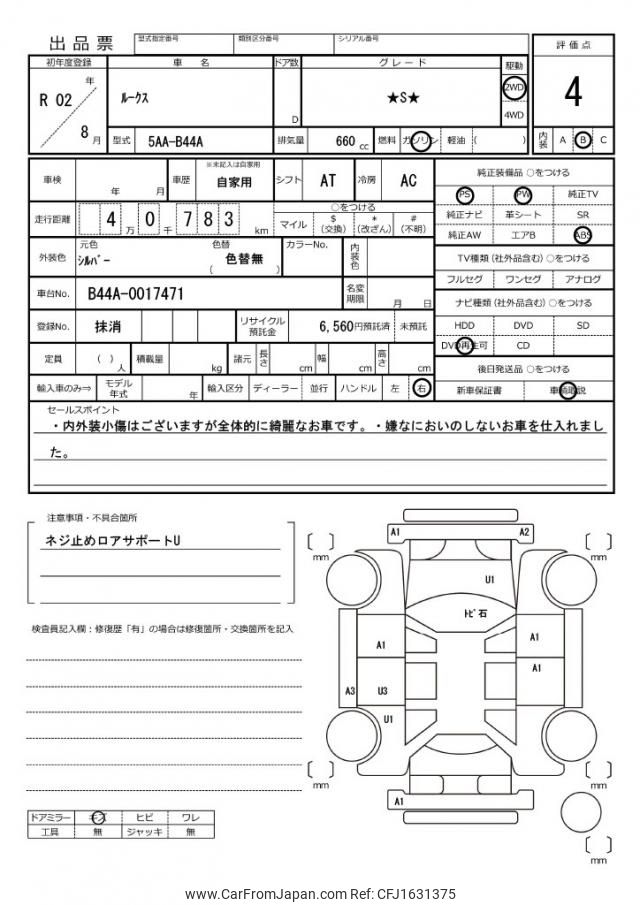 出品票
型式指定番号 類別区分番号 シリアル番号
初年度登録 車名 ドア数 グレード 駆動 評価点
R 02 年 8 月
ルークス D ★S★ 2WD 4WD 4
型式 5AA-B44A 排気量 660 cc 燃料 ガソリン 軽油 ( ) 内装 A B C
車検 年 月 車歴 ※未記入は自家用 自家用 シフト AT 冷房 AC
走行距離 4 万 0 千 783 km ○をつける マイル $(交換) *(改ざん) #(不明)
外装色 元色 シルバー 色替 ( 色替無 ) カラーNo. 内装色
車台No. B44A-0017471 名変期限 月 日
登録No. 抹消 リサイクル預託金 6,560円預託済 未預託
定員 ( ) 人 積載量 kg 諸元 長さ cm 幅 cm 高さ cm
輸入車のみ⇒ モデル年式 年 輸入区分 ディーラー 並行 ハンドル 左 右
純正装備品 ○をつける
PS PW 純正TV
純正ナビ 革シート SR
純正AW エアB ABS
TV種類 (社外品含む) ○をつける
フルセグ ワンセグ アナログ
ナビ種類 (社外品含む) ○をつける
HDD DVD SD
DVD再生可 CD
後日発送品 ○をつける
新車保証書 車輌取説
セールスポイント
・内外装小傷はございますが全体的に綺麗なお車です。・嫌なにおいのしないお車を仕入れまし
た。
注意事項・不具合箇所
ネジ止めロアサポートU
検査員記入欄：修復歴「有」の場合は修復箇所・交換箇所を記入
A1 A2
mm mm
U1
トビ石
A1 A1
A1
A3 U3
U1
mm mm
A1
mm
ドアミラー キズ ヒビ ワレ
工具 無 ジャッキ 無
www.CarFromJapan.com Ref: CFJ1631375